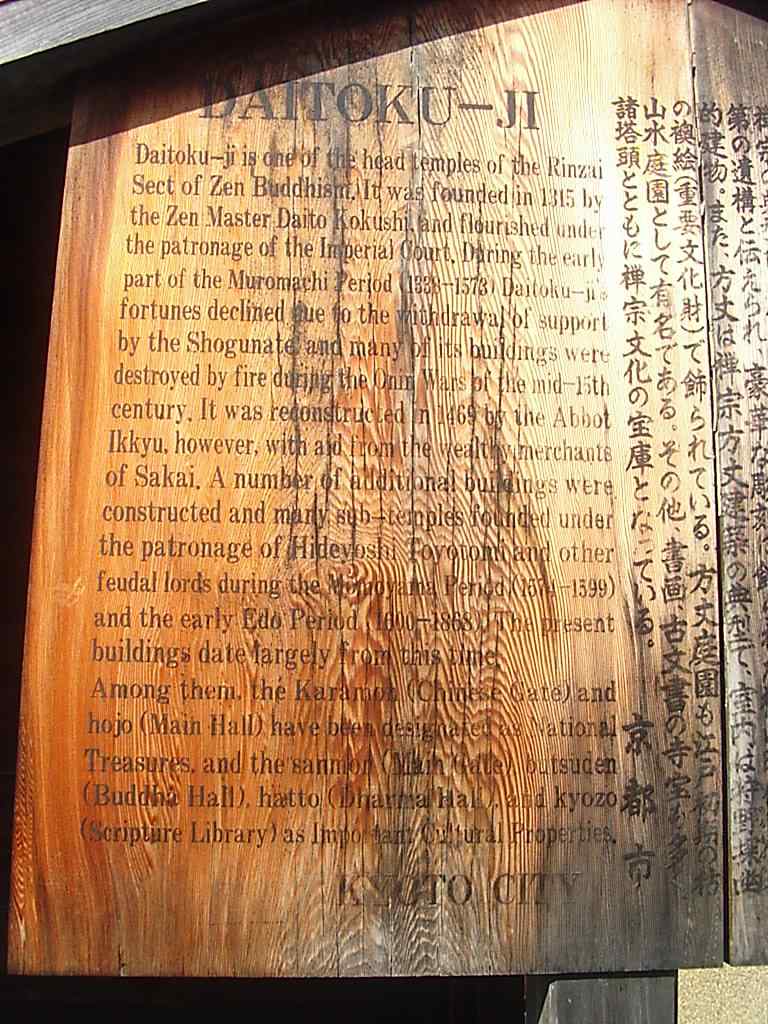 DAITOKU-JI
Daitoku-ji is one of the head temples of the Rinzai
Sect of Zen Buddhism. It was founded in 1315 by
the Zen Master Daito Kokushi, and flourished under
the patronage of the Imperial Court. During the early
part of the Muromachi Period (1338-1573) Daitoku-ji's
fortunes declined due to the withdrawal of support
by the Shogunate and many of its buildings were
destroyed by fire during the Onin Wars of the mid-15th
century. It was reconstructed in 1469 by the Abbot
Ikkyu, however, with aid from the wealthy merchants
of Sakai. A number of additional buildings were
constructed and many sub-temples founded under
the patronage of Hideyoshi Toyotomi and other
feudal lords during the Momoyama Period (1574-1599)
and the early Edo Period (1600-1868). The present
buildings date largely from this time.
Among them, the Karamon (Chinese Gate) and
hojo (Main Hall) have been designated as National
Treasures, and the sanmon (Main Gate), butsuden
(Buddha Hall), hatto (Dharma Hall), and kyozo
(Scripture Library) as Important Cultural Properties.
KYOTO CITY
第の遺構と伝えられ、豪華な彫刻
的建物。また、方丈は禅宗方丈建築の典型で、室内は狩野探幽
の襖絵(重要文化財)で飾られている。方丈庭園も江戸初期の枯
山水庭園として有名である。その他、書画、古文書の寺宝も多く、
諸塔頭とともに禅宗文化の宝庫となっている。
京都市